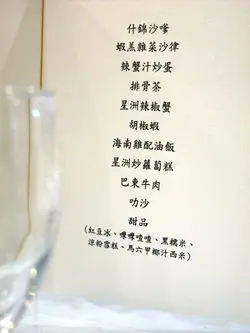 什錦沙嗲
蝦羔雜菜沙律
辣蟹汁炒蛋
排骨茶
星洲辣椒蟹
胡椒蝦
海南雞配油飯
星洲炒蘿蔔糕
巴東牛肉
叻沙
甜品
(紅豆冰、嚤嚤喳喳、黑糯米、
涼粉雪糕、馬六甲椰汁西米)